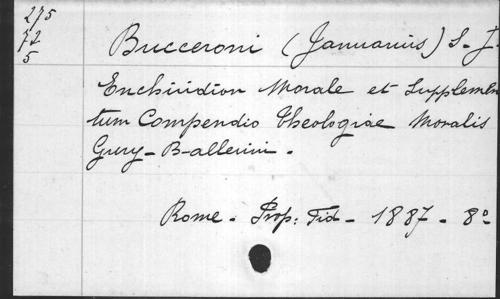 275
72
5
Bucceroni (Januarius) S. J.
Enchiridion Morale et Supplemen
tum Compendio Theologiae Moralis
Gury-Ballerini.
Rome. Prop: Fid. 1887. 8º